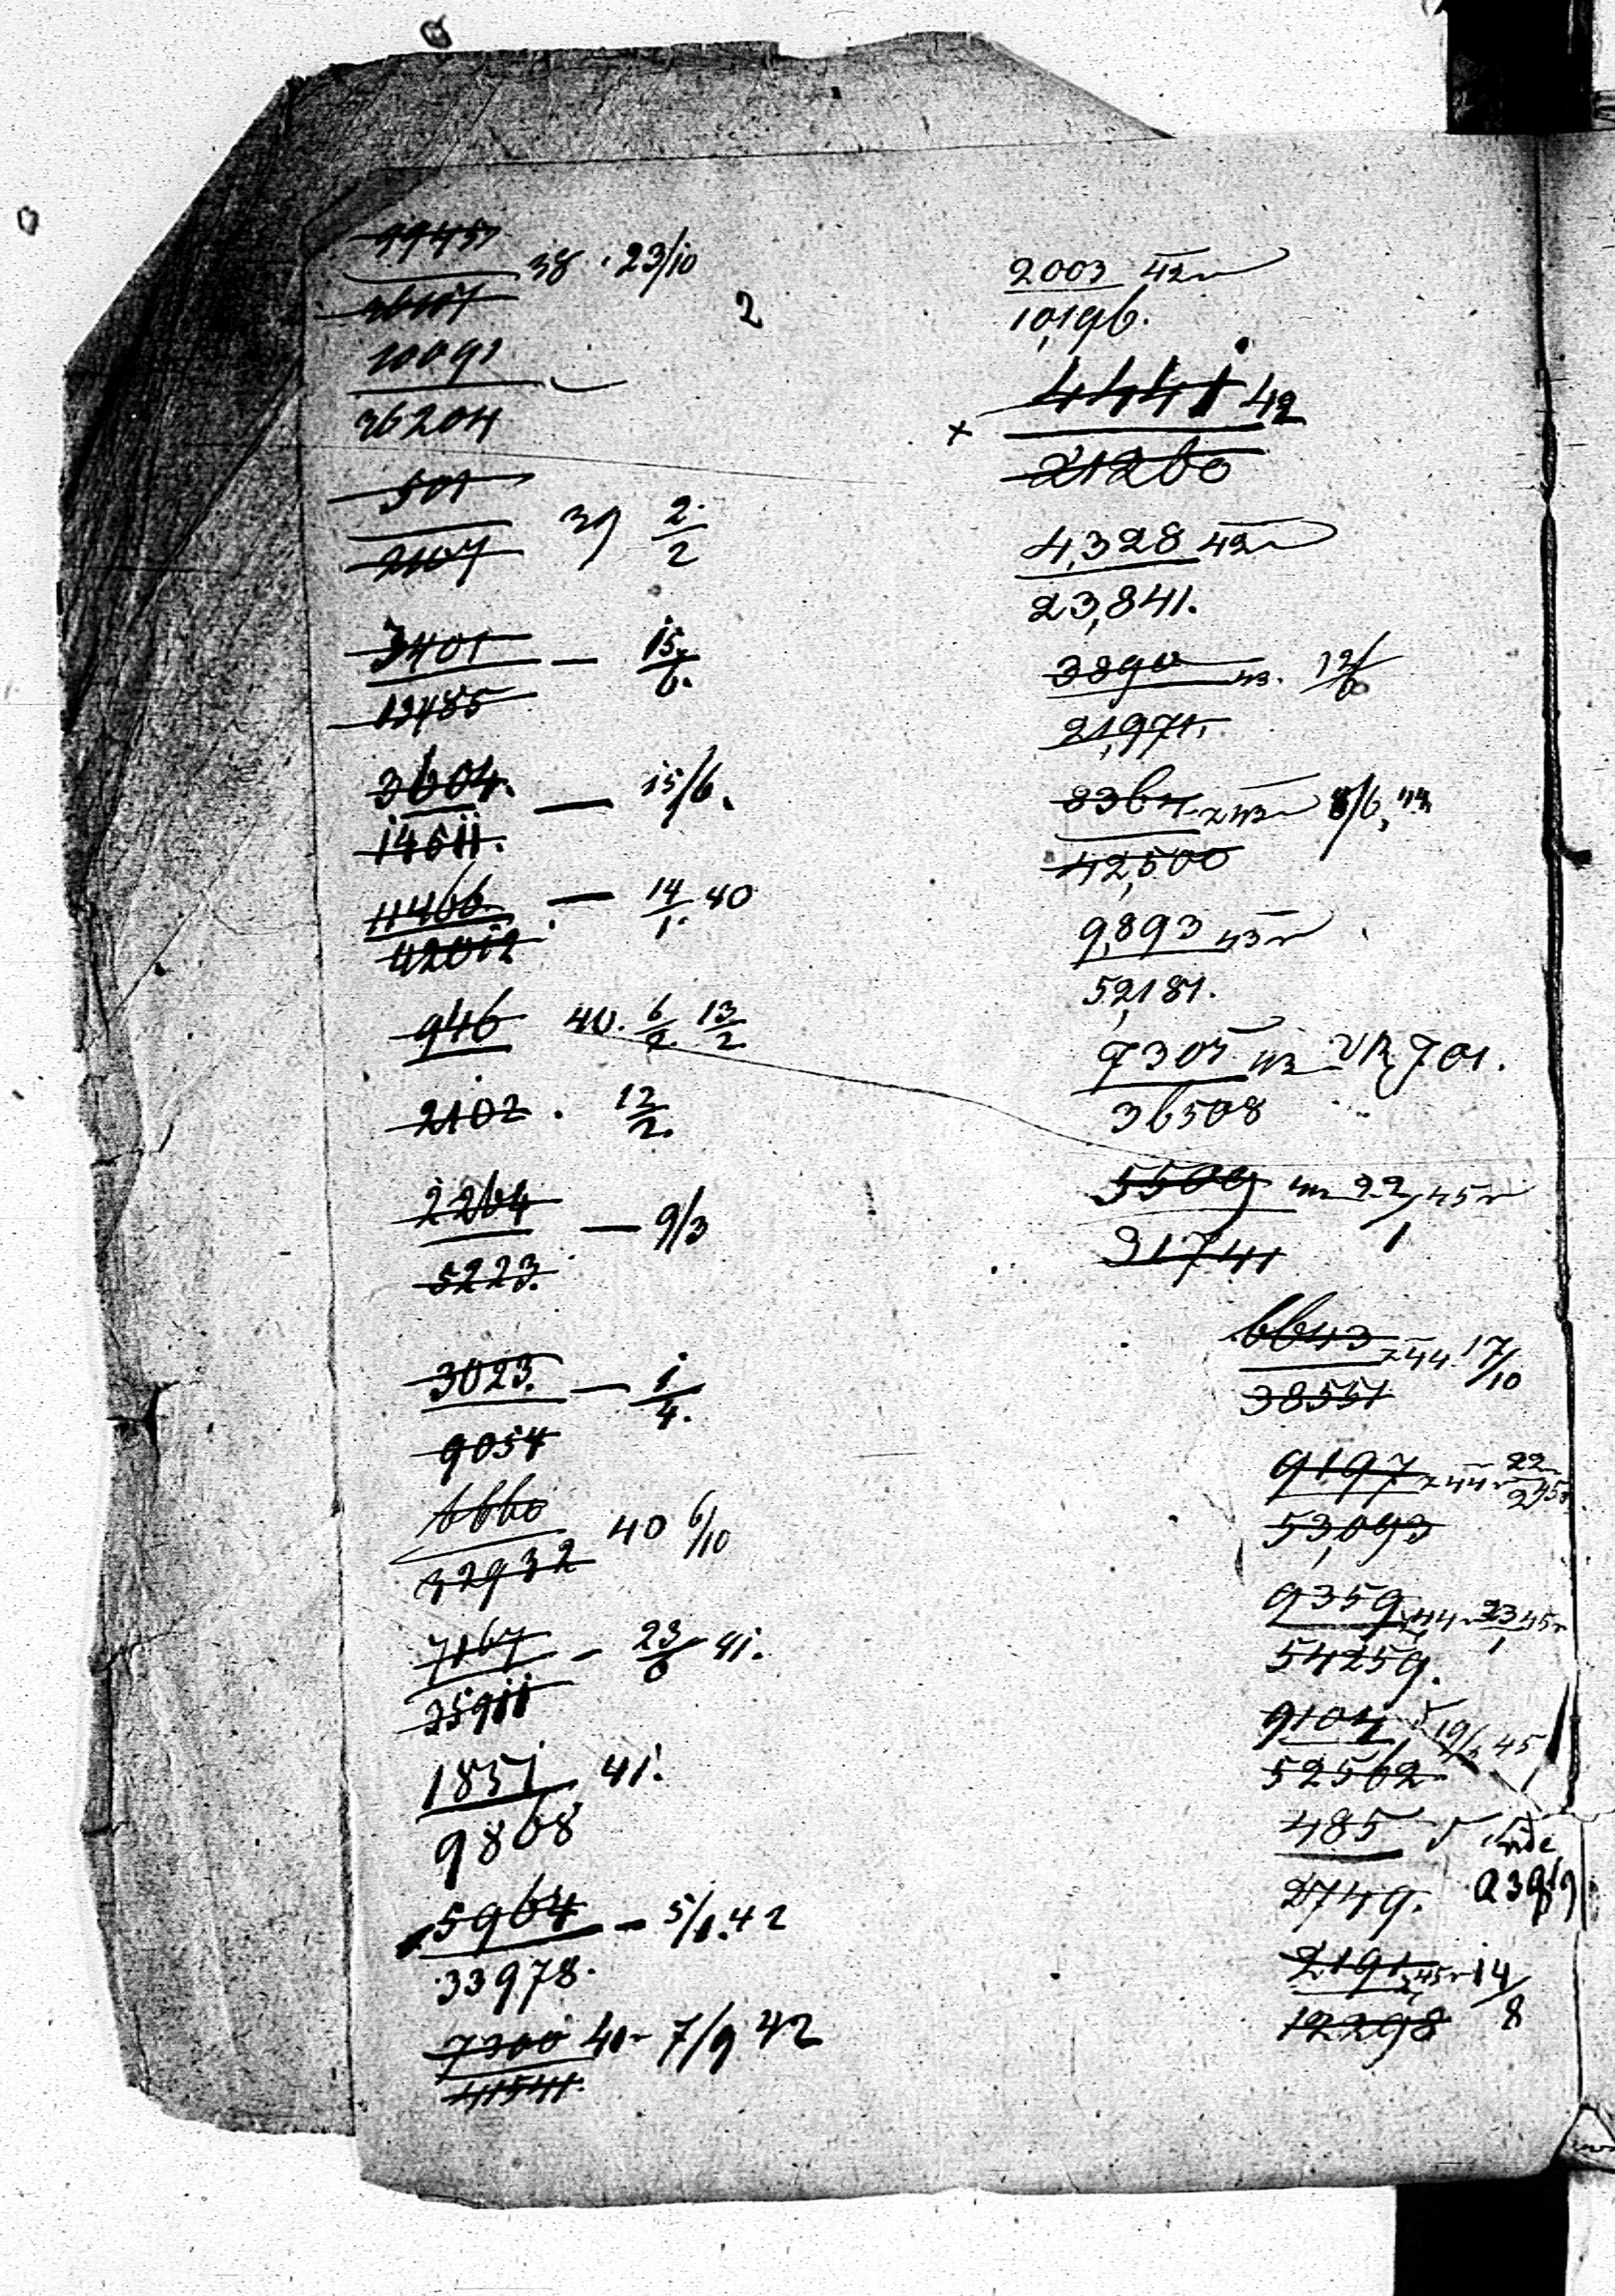 38 . 23/10
2
10091
36204
501
2107
39 2/2
3401 — 15/6.
12485
3604. — 15/6.
14511.
11466. — 14/1. 40
42012
946 40. 6/2 13/2
2102 . 12/2.
2264 — 9/3
5223.
3023. — 1/4.
9054
6660 40 6/10
32932
7167 — 23/6 41.
35911
1851 41.
9868
5964 — 5/1.42
33978.
7300 40 7/9 42
41541.
2003 42
10,196.
4441 42
x 21260
4,328 42
23,841.
3890 43. 12/6
21,971.
8364 43 8/6, 44
42,500
9,893 43
52,181.
7305 43 VR, 701.
36508
5509 22/1 45
31741
6643 44 17/10
38551
9197 44 22/2 45
53,093
9359 44 23/1 45
54259.
9104 19/3 45
52562
485
2749.
2191 45 14/8
12298